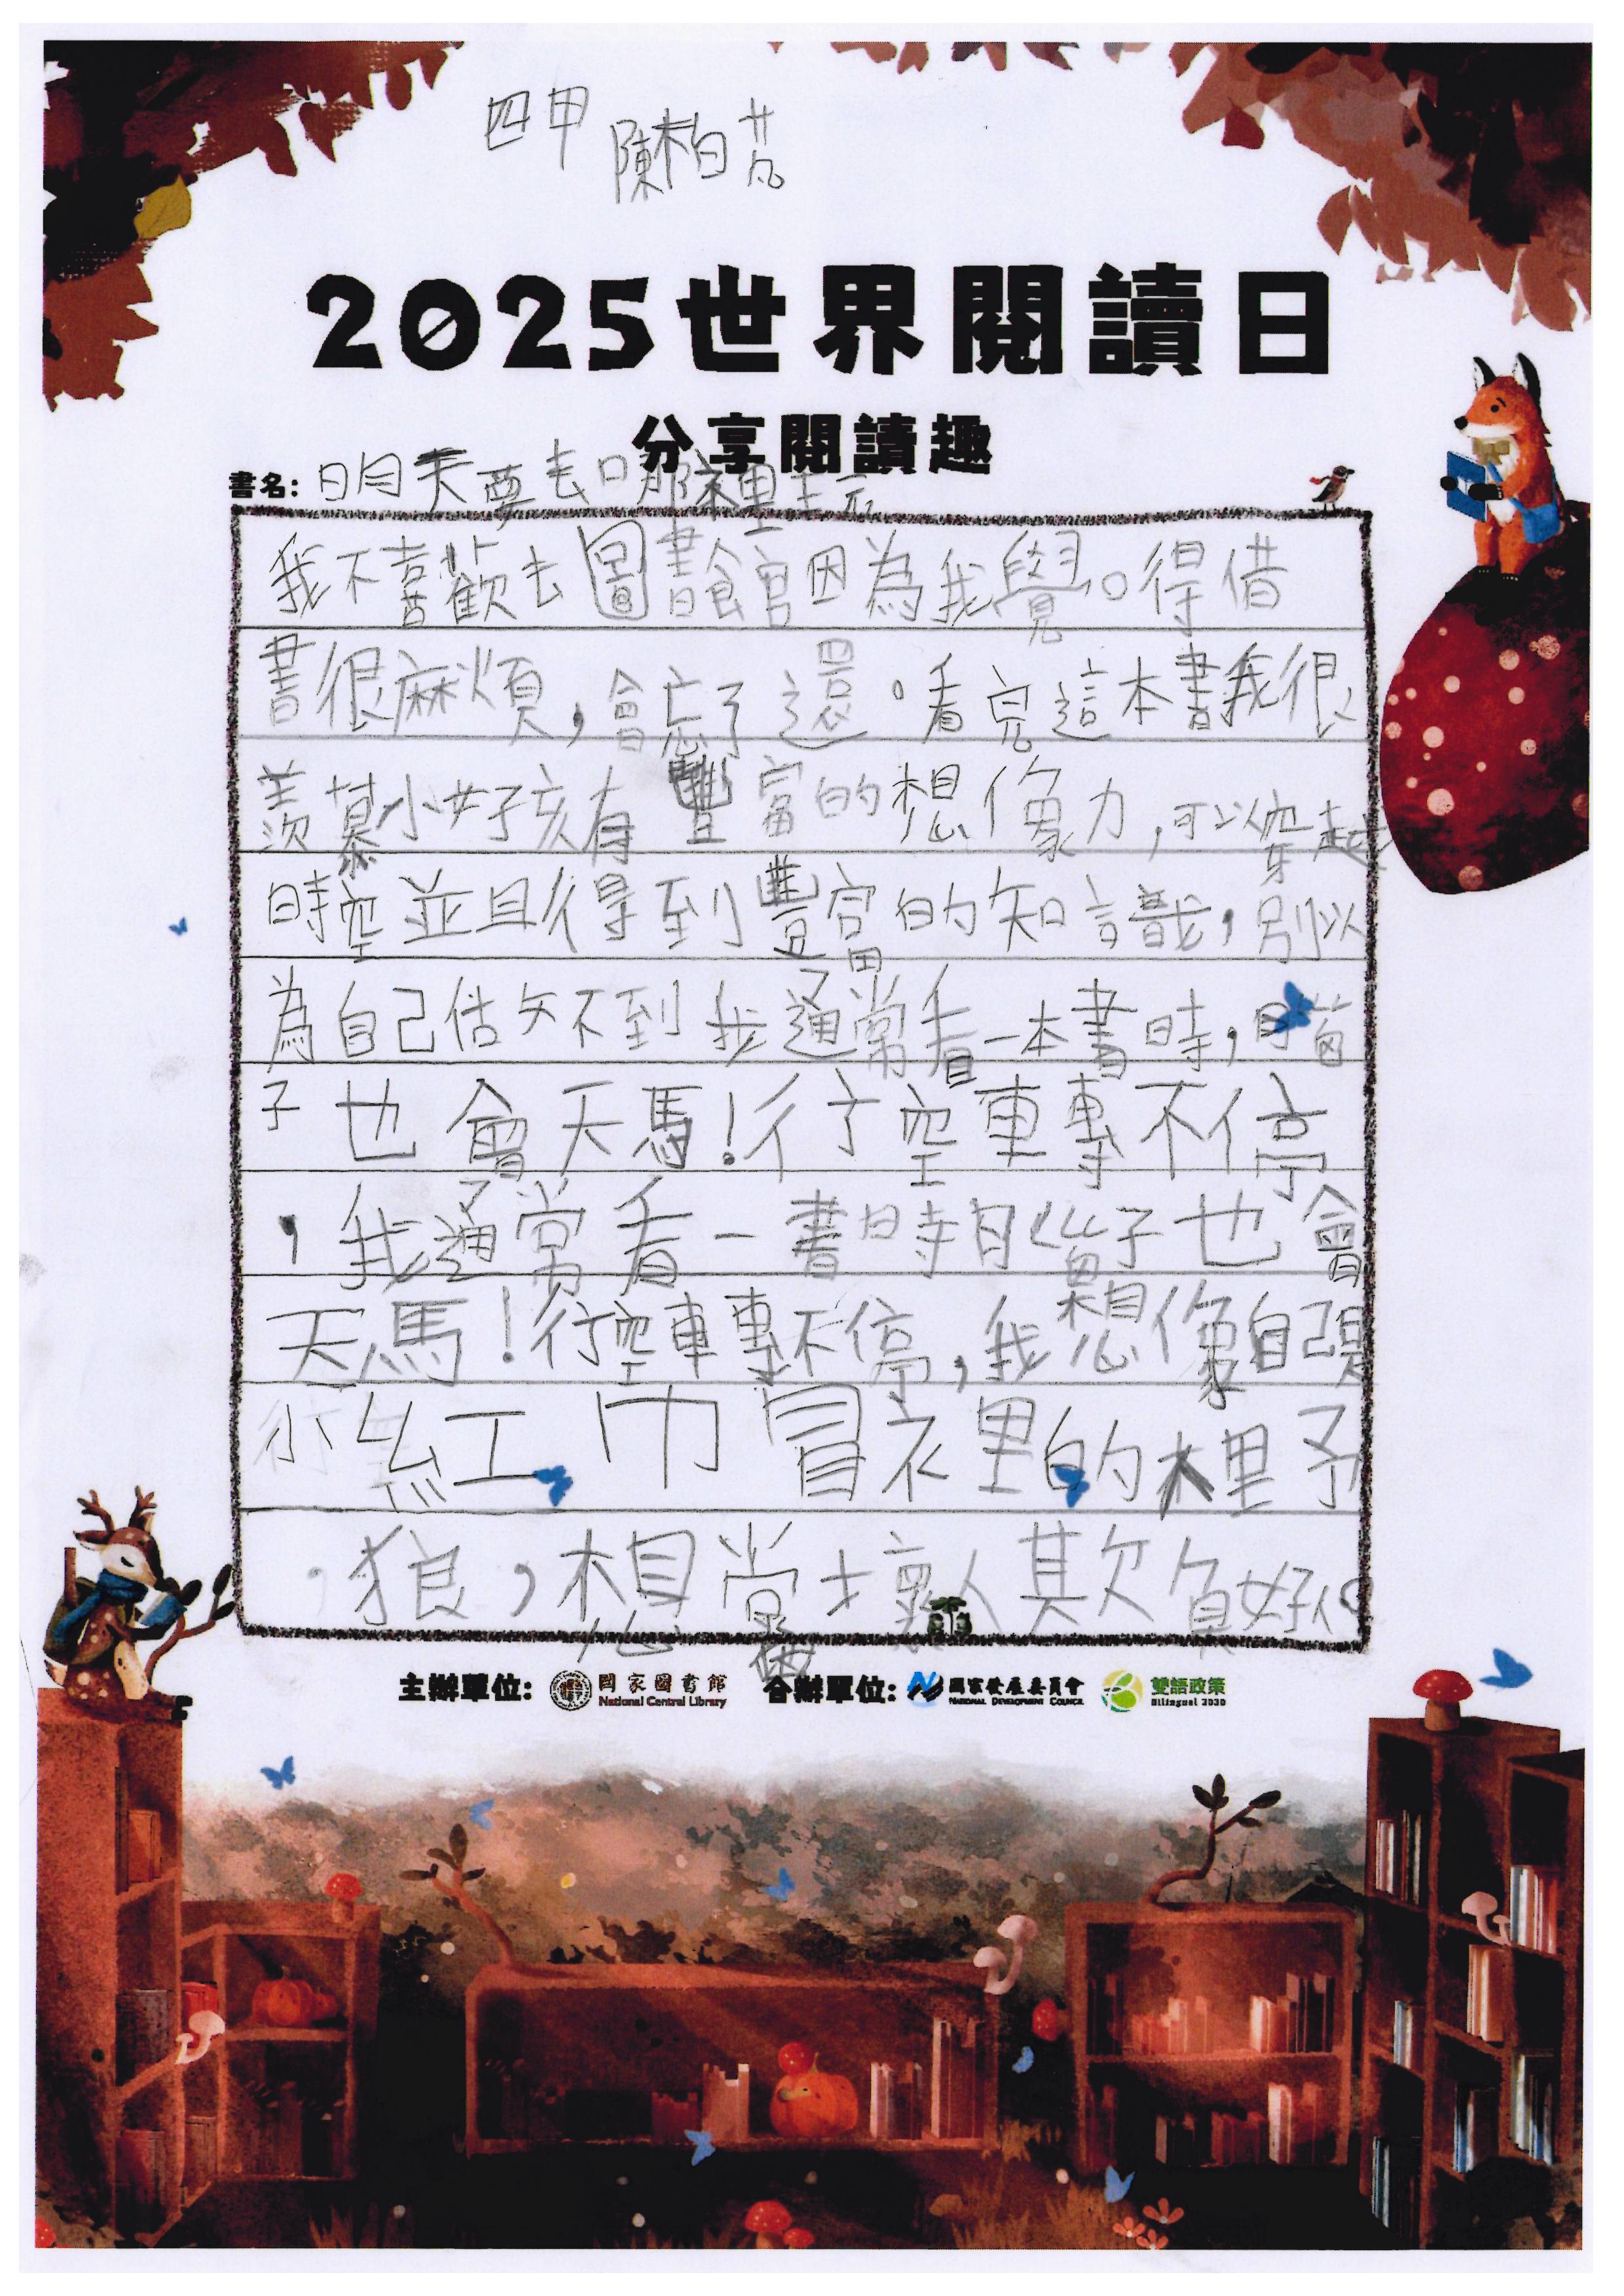 四甲 陳柏芃
2025世界閱讀日
分享閱讀趣
書名: 明天要去哪裡玩
我不喜歡去圖書館因為我覺得借
書很麻煩,會忘了還。看完這本書我很
羨慕小女孩有豐富的想像力,可以穿越
時空並且得到豐富的知識,別以
為自己估做不到我通常看一本書時,腦
子也會天馬!行空轉不停
,我通常看一書時腦子也會
天馬!行空轉不停,我想像自己是
小紅帽裡的野
狼,想當壞人欺負好人。
主辦單位: 國家圖書館 National Central Library 合辦單位: 國家發展委員會 National Development Council 雙語政策 Bilingual 2030